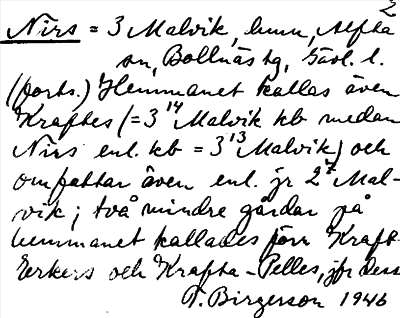 2
Nirs = 3 Malvik, hmn, Alfta
sn, Bollnäs tg, Gävl. l.
(forts.) Hemmanet kallas även
Kraftes (= 3 14 Malvik kb medan
Nirs enl. kb = 3 13 Malvik) och
omfattar även enl. jr 2 7 Mal-
vik; två mindre gårdar på
hemmanet kallades förr Kraft-
Erkers och Krafta-Pelles, jfr dess
T. Birgerson 1946